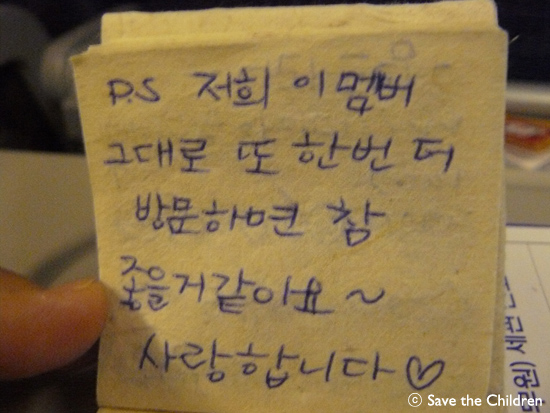 P.S 저희 이 멤버
그대로 또 한번 더
방문하면 참
좋을거같아요~
사랑합니다♡
세면
© Save the Children